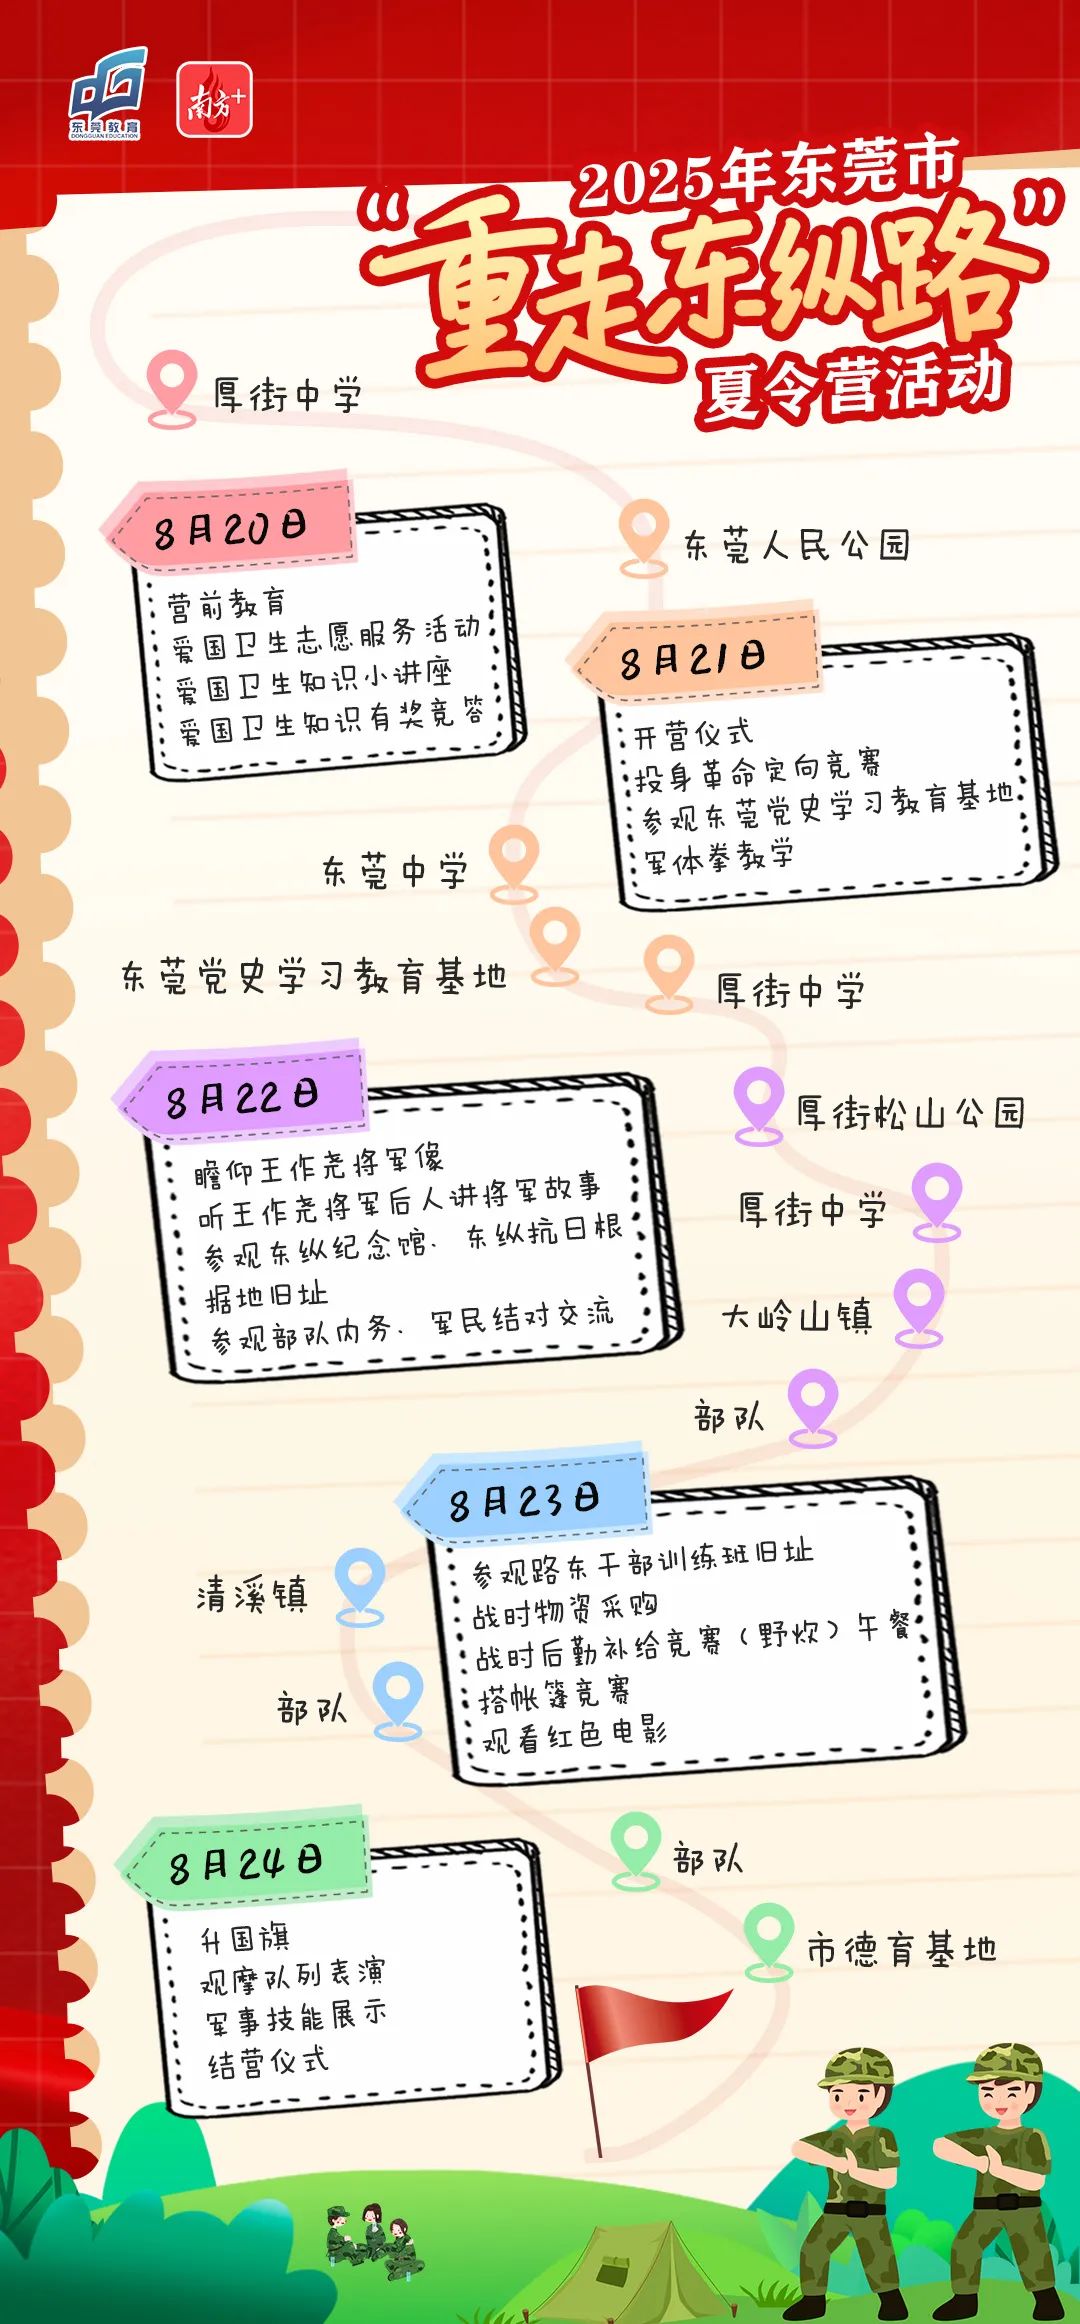 东莞教育
DONGGUAN EDUCATION
南方+
2025年东莞市
“重走东纵路”
夏令营活动
厚街中学
8月20日
营前教育
爱国卫生志愿服务活动
爱国卫生知识小讲座
爱国卫生知识有奖竞答
东莞人民公园
8月21日
开营仪式
投身革命定向竞赛
参观东莞党史学习教育基地
军体拳教学
东莞中学
东莞党史学习教育基地
厚街中学
8月22日
瞻仰王作尧将军像
听王作尧将军后人讲将军故事
参观东纵纪念馆、东纵抗日根
据地旧址
参观部队内务、军民结对交流
厚街松山公园
厚街中学
大岭山镇
部队
8月23日
参观路东干部训练班旧址
战时物资采购
战时后勤补给竞赛（野炊）午餐
搭帐篷竞赛
观看红色电影
清溪镇
部队
8月24日
升国旗
观摩队列表演
军事技能展示
结营仪式
部队
市德育基地